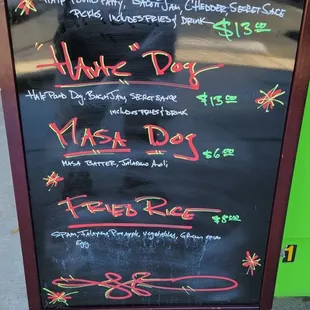 Half Pound Patty, Bacon Jam, Cheddar Secret Sauce
Pickles, includes Fries & Drink $13.00
"Hawk" Dog
Half Pound Dog, Bacon Jam, Secret Sauce $13.00
includes Fries & Drink
Masa Dog $6.00
Masa Batter, Jalapeno Aoili
Fried Rice $8.00
Spam, Jalapeno, Pineapple, Vegetables, Green onion
Egg